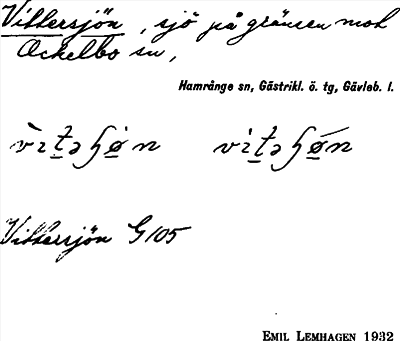 Vittersjön, sjö på gränsen mot
Ockelbo sn,
Hamrånge sn, Gästrikl. ö. tg, Gävleb. l.
Vittersjön G 105
EMIL LEMHAGEN 1932